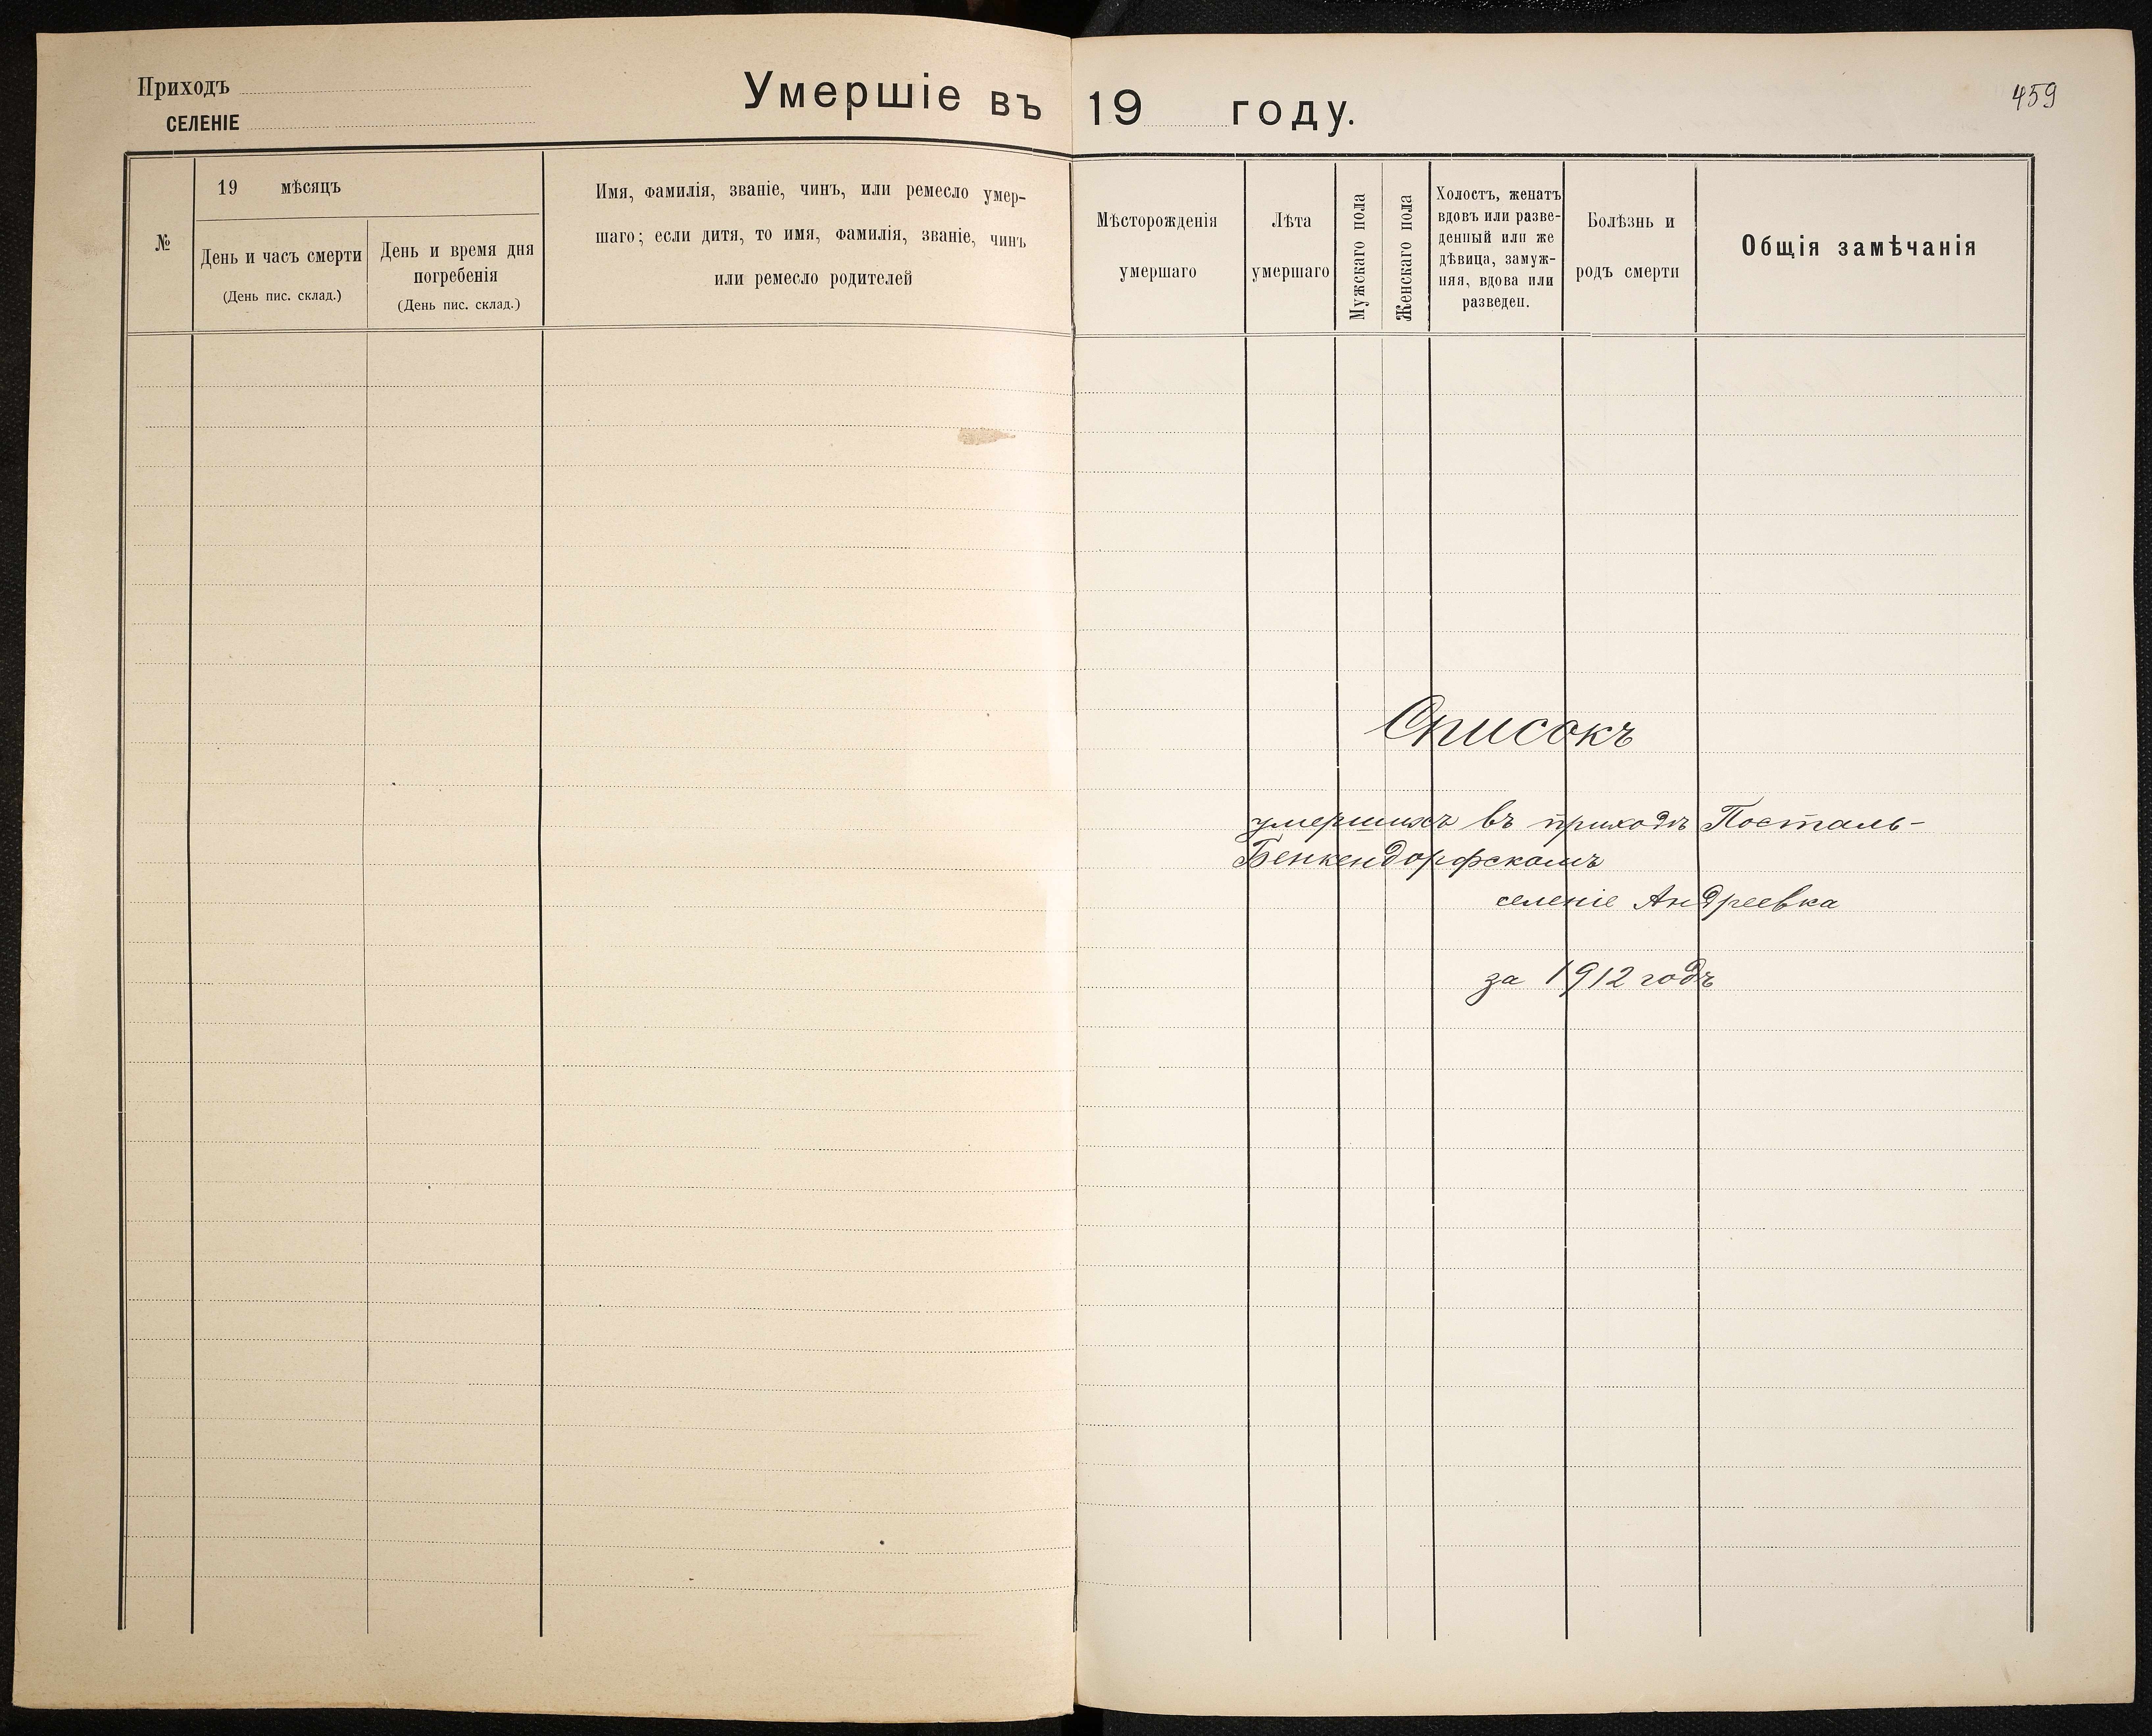 Приходъ
СЕЛЕНІЕ
Умершіе въ 19 году.
459
№
19 мѣсяцъ
День и часъ смерти
(День пис. склад.)
День и время дня
погребенія
(День пис. склад.)
Имя, фамилія, званіе, чинъ, или ремесло умер-
шаго; если дитя, то имя, фамилія, званіе, чинъ
или ремесло родителей
Мѣсторожденія
умершаго
Лѣта
умершаго
Мужскаго пола
Женскаго пола
Холостъ, женатъ
вдовъ или разве-
денный или же
дѣвица, замуж-
няя, вдова или
разведен.
Болѣзнь и
родъ смерти
Общія замѣчанія
Списокъ
умершихъ въ приходѣ Посталь-
Бенкендорфскомъ
селеніе Андреевка
за 1912 годъ